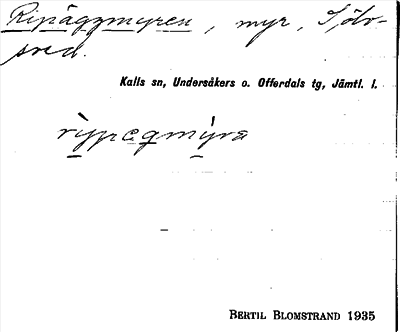 Ripäggmyren, myr, Sölv-
sved.
Kalls sn, Undersåkers o. Offerdals tg, Jämtl. l.
rỳpęgmýra
BERTIL BLOMSTRAND 1935